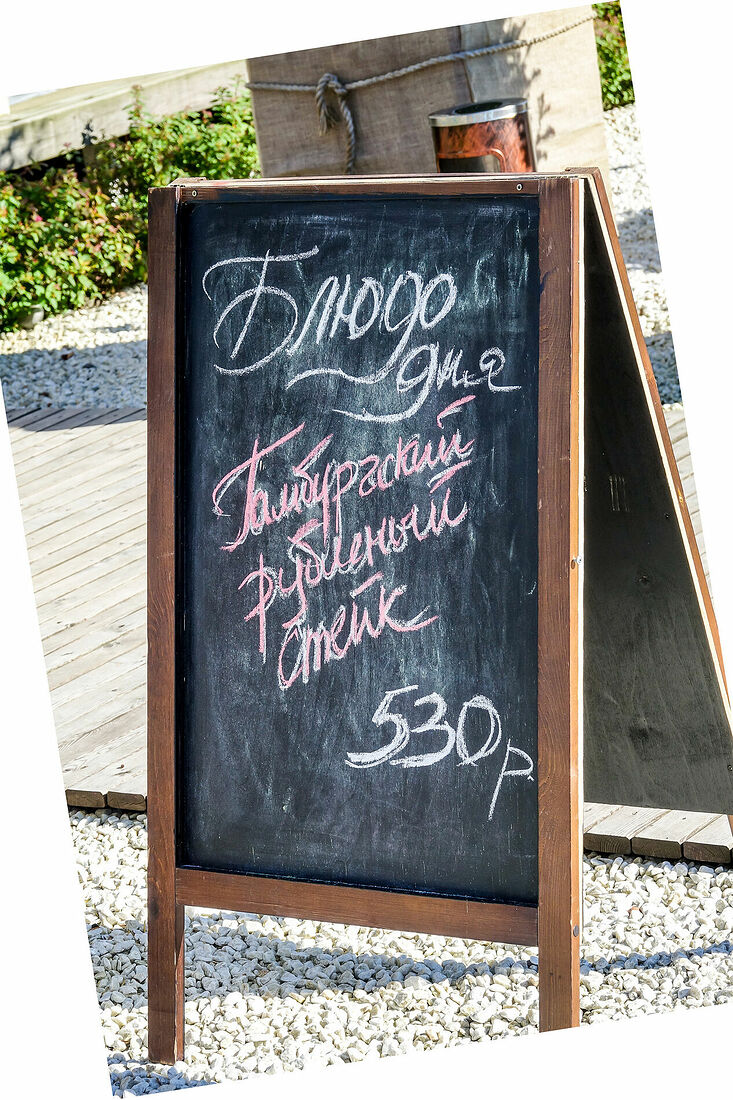 Блюдо
дня
Гамбургский
рубленый
стейк
530р